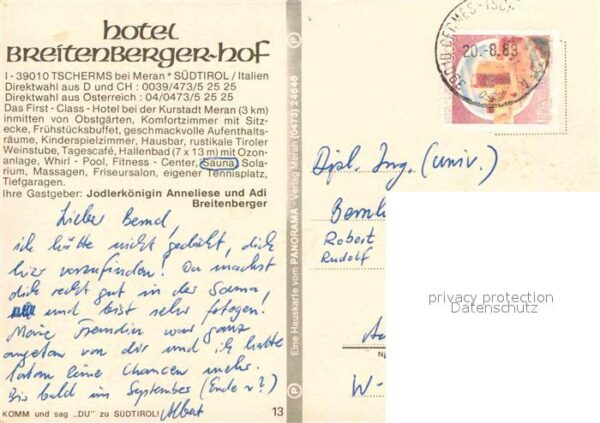 hotel
BREITENBERGER-HOF
I - 39010 TSCHERMS bei Meran * SÜDTIROL / Italien
Direktwahl aus D und CH : 0039/473/5 25 25
Direktwahl aus Österreich : 04/0473/5 25 25
Das First - Class - Hotel bei der Kurstadt Meran (3 km)
inmitten von Obstgärten, Komfortzimmer mit Sitz-
ecke, Frühstücksbuffet, geschmackvolle Aufenthalts-
räume, Kinderspielzimmer, Hausbar, rustikale Tiroler
Weinstube, Tagescafé, Hallenbad (7 x 13 m) mit Ozon-
anlage, Whirl - Pool, Fitness - Center, Sauna, Sola-
rium, Massagen, Friseursalon, eigener Tennisplatz,
Tiefgaragen.
Ihre Gastgeber: Jodlerkönigin Anneliese und Adi
Breitenberger
Lieber Bernd,
ich hätte nicht gedacht, dich
hier vorzufinden! Du machst
dich recht gut in der Sauna,
und bist sehr fotogen!
Meine Freundin war ganz
angetan von dir und ich hatte
fortan keine Chancen mehr.
Bis bald im September (Ende 9?)
Albert
KOMM und sag „DU" zu SÜDTIROL!
13
Eine Hauskarte vom PANORAMA - Verlag Meran (0473) 24646
P
P
39010 CERMES-
20.-8.83
Dipl. Ing. (univ.)
Bernh
Robert
Rudolf
W-
privacy protection
Datenschutz